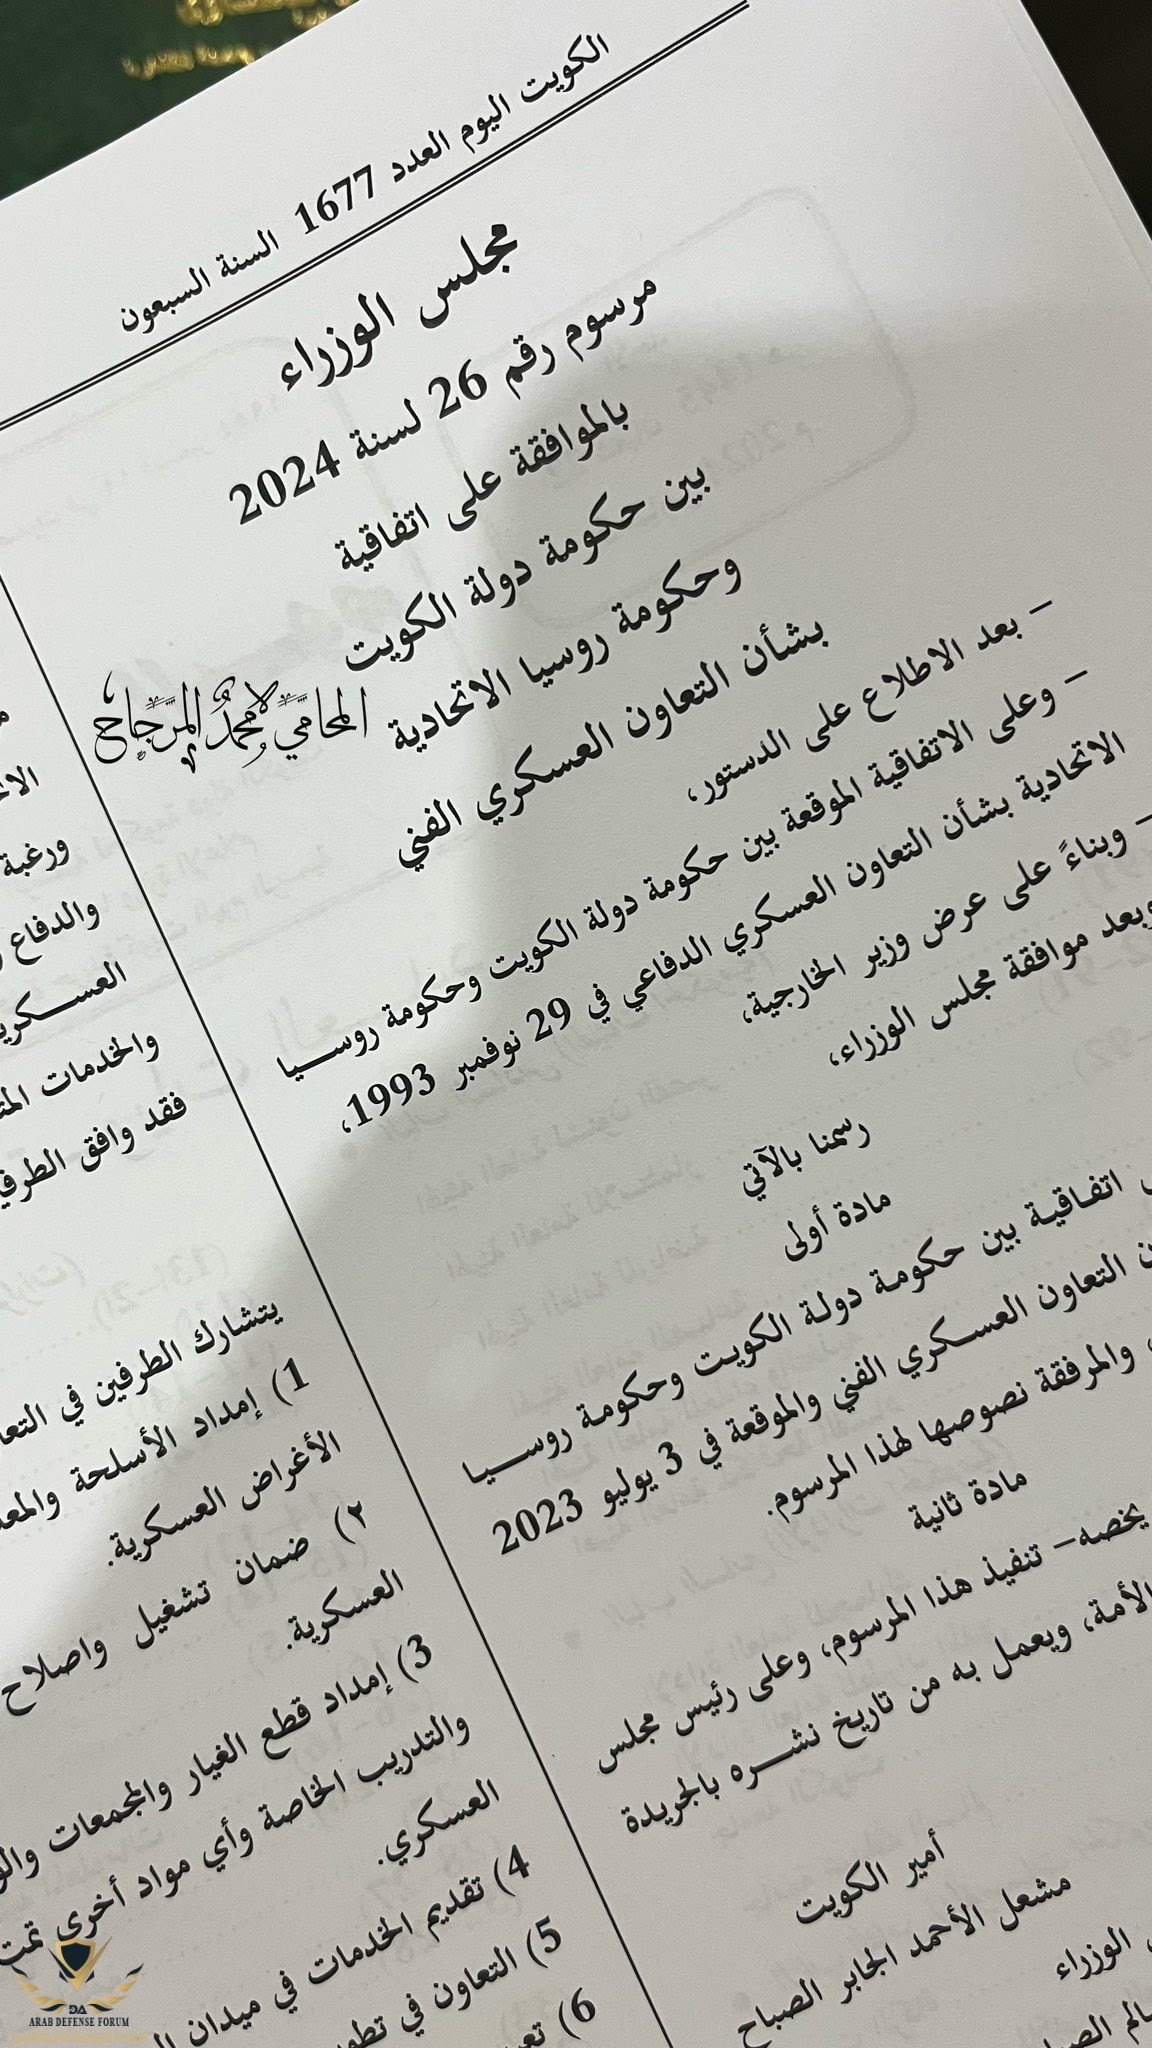 الكويت اليوم العدد 1677 السنة السبعون
مجلس الوزراء
مرسوم رقم 26 لسنة 2024
بالموافقة على اتفاقية
بين حكومة دولة الكويت
وحكومة روسيا الاتحادية
بشأن التعاون العسكري الفني
– بعد الاطلاع على الدستور،
– وعلى الاتفاقية الموقعة بين حكومة دولة الكويت وحكومة روسيا
الاتحادية بشأن التعاون العسكري الدفاعي في 29 نوفمبر 1993،
– وبناءً على عرض وزير الخارجية،
وبعد موافقة مجلس الوزراء،
رسمنا بالآتي
مادة أولى
اتفاقية بين حكومة دولة الكويت وحكومة روسيا
التعاون العسكري الفني والموقعة في 3 يوليو 2023
والمرفقة نصوصها لهذا المرسوم.
مادة ثانية
يخصه– تنفيذ هذا المرسوم، وعلى رئيس مجلس
الأمة، ويعمل به من تاريخ نشره بالجريدة
أمير الكويت
مشعل الأحمد الجابر الصباح
الوزراء
المحامي محمد المرجاح
ورغبة
والدفاع
والخدمات
فقد وافق
يتشارك الطرفين في
1) إمداد الأسلحة
الأغراض العسكرية.
٢) ضمان تشغيل واصلاح
العسكرية.
3) إمداد قطع الغيار والمجمعات
والتدريب الخاصة وأي مواد أخرى
العسكري.
4) تقديم الخدمات في ميدان
5) التعاون في
6)
DA
ARAB DEFENSE FORUM